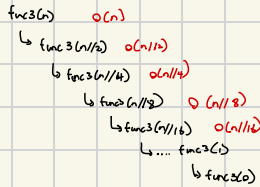 func3(n) O(n)
func3(n//2) O(n//2)
func3(n//4) O(n//4)
func3(n//8) O(n//8)
func3(n//16) O(n//16)
.... func3(1)
func3(0)